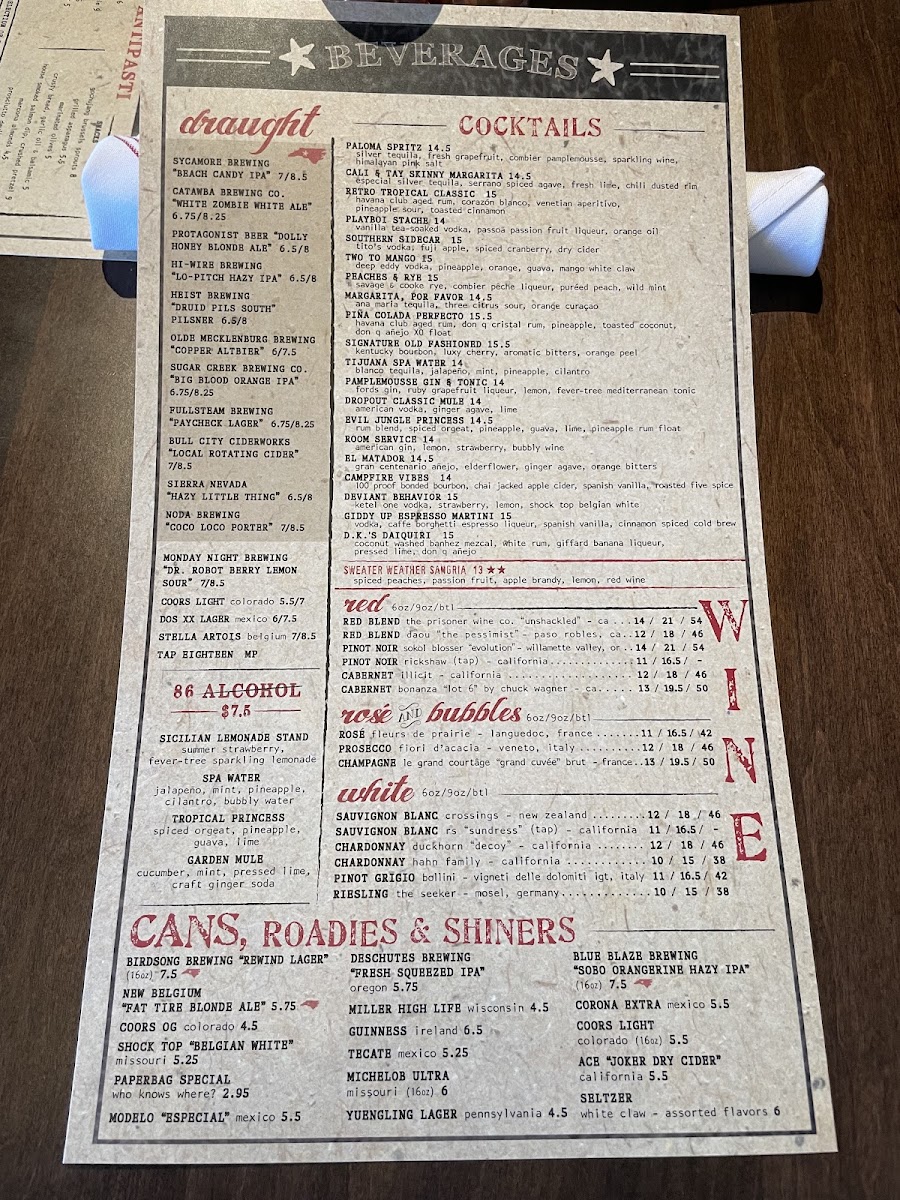 ANTIPASTI
BEVERAGES
draught
SYCAMORE BREWING
"BEACH CANDY IPA" 7/8.5
CATAWBA BREWING CO.
"WHITE ZOMBIE WHITE ALE"
6.75/8.25
PROTAGONIST BEER "DOLLY
HONEY BLONDE ALE" 6.5/8
HI-WIRE BREWING
"LO-PITCH HAZY IPA" 6.5/8
HEIST BREWING
"DRUID PILS SOUTH"
PILSNER 6.5/8
OLDE MECKLENBURG BREWING
"COPPER ALTBIER" 6/7.5
SUGAR CREEK BREWING CO.
"BIG BLOOD ORANGE IPA"
6.75/8.25
FULLSTEAM BREWING
"PAYCHECK LAGER" 6.75/8.25
BULL CITY CIDERWORKS
"LOCAL ROTATING CIDER"
7/8.5
SIERRA NEVADA
"HAZY LITTLE THING" 6.5/8
NODA BREWING
"COCO LOCO PORTER" 7/8.5
MONDAY NIGHT BREWING
"DR. ROBOT BERRY LEMON
SOUR" 7/8.5
COORS LIGHT colorado 5.5/7
DOS XX LAGER mexico 6/7.5
STELLA ARTOIS belgium 7/8.5
TAP EIGHTEEN MP
86 ALCOHOL
$7.5
SICILIAN LEMONADE STAND
summer strawberry,
fever-tree sparkling lemonade
SPA WATER
jalapeño, mint, pineapple,
cilantro, bubbly water
TROPICAL PRINCESS
spiced orgeat, pineapple,
guava, lime
GARDEN MULE
cucumber, mint, pressed lime,
craft ginger soda
COCKTAILS
PALOMA SPRITZ 14.5
silver tequila, fresh grapefruit, combier pamplemousse, sparkling wine,
himalayan pink salt
CALI & TAY SKINNY MARGARITA 14.5
especial silver tequila, serrano spiced agave, fresh lime, chili dusted rim
RETRO TROPICAL CLASSIC 15
havana club aged rum, corazón blanco, venetian aperitivo,
pineapple sour, toasted cinnamon
PLAYBOI STACHE 14
vanilla tea-soaked vodka, passoã passion fruit liqueur, orange oil
SOUTHERN SIDECAR 15
tito's vodka, fuji apple, spiced cranberry, dry cider
TWO TO MANGO 15
deep eddy vodka, pineapple, orange, guava, mango white claw
PEACHES & RYE 15
savage & cooke rye, combier pêche liqueur, puréed peach, wild mint
MARGARITA, POR FAVOR 14.5
ana maria tequila, three citrus sour, orange curaçao
PIÑA COLADA PERFECTO 15.5
havana club aged rum, don q cristal rum, pineapple, toasted coconut,
don q añejo XO float
SIGNATURE OLD FASHIONED 15.5
kentucky bourbon, luxy cherry, aromatic bitters, orange peel
TIJUANA SPA WATER 14
blanco tequila, jalapeño, mint, pineapple, cilantro
PAMPLEMOUSSE GIN & TONIC 14
fords gin, ruby grapefruit liqueur, lemon, fever-tree mediterranean tonic
DROPOUT CLASSIC MULE 14
american vodka, ginger agave, lime
EVIL JUNGLE PRINCESS 14.5
rum blend, spiced orgeat, pineapple, guava, lime, pineapple rum float
ROOM SERVICE 14
american gin, lemon, strawberry, bubbly wine
EL MATADOR 14.5
gran centenario añejo, elderflower, ginger agave, orange bitters
CAMPFIRE VIBES 14
100 proof bonded bourbon, chai jacked apple cider, spanish vanilla, roasted five spice
DEVIANT BEHAVIOR 15
ketel one vodka, strawberry, lemon, shock top belgian white
GIDDY UP ESPRESSO MARTINI 15
vodka, caffe borghetti espresso liqueur, spanish vanilla, cinnamon spiced cold brew
D.K.'S DAIQUIRI 15
coconut washed banhez mezcal, white rum, giffard banana liqueur,
pressed lime, don q añejo
SWEATER WEATHER SANGRIA 13 ★★
spiced peaches, passion fruit, apple brandy, lemon, red wine
WINE
red 6oz/9oz/btl
RED BLEND the prisoner wine co. "unshackled" - ca ...14 / 21 / 54
RED BLEND daou "the pessimist" - paso robles, ca..12 / 18 / 46
PINOT NOIR sokol blosser "evolution" - willamette valley, or ..14 / 21 / 54
PINOT NOIR rickshaw (tap) - california..............11 / 16.5 / -
CABERNET illicit - california .....................12 / 18 / 46
CABERNET bonanza "lot 6" by chuck wagner - ca..... 13 / 19.5 / 50
rosé AND bubbles 6oz/9oz/btl
ROSÉ fleurs de prairie - languedoc, france .......11 / 16.5 / 42
PROSECCO fiori d'acacia - veneto, italy ..........12 / 18 / 46
CHAMPAGNE le grand courtâge "grand cuvée" brut - france..13 / 19.5 / 50
white 6oz/9oz/btl
SAUVIGNON BLANC crossings - new zealand .........12 / 18 / 46
SAUVIGNON BLANC rs "sundress" (tap) - california 11 / 16.5 / -
CHARDONNAY duckhorn "decoy" - california ........ 12 / 18 / 46
CHARDONNAY hahn family - california ............. 10 / 15 / 38
PINOT GRIGIO bollini - vigneti delle dolomiti igt, italy 11 / 16.5 / 42
RIESLING the seeker - mosel, germany............. 10 / 15 / 38
CANS, ROADIES & SHINERS
BIRDSONG BREWING "REWIND LAGER"
(16oz) 7.5
NEW BELGIUM
"FAT TIRE BLONDE ALE" 5.75
COORS OG colorado 4.5
SHOCK TOP "BELGIAN WHITE"
missouri 5.25
PAPERBAG SPECIAL
who knows where? 2.95
MODELO "ESPECIAL" mexico 5.5
DESCHUTES BREWING
"FRESH SQUEEZED IPA"
oregon 5.75
MILLER HIGH LIFE wisconsin 4.5
GUINNESS ireland 6.5
TECATE mexico 5.25
MICHELOB ULTRA
missouri (16oz) 6
YUENGLING LAGER pennsylvania 4.5
BLUE BLAZE BREWING
"SOBO ORANGERINE HAZY IPA"
(16oz) 7.5
CORONA EXTRA mexico 5.5
COORS LIGHT
colorado (16oz) 5.5
ACE "JOKER DRY CIDER"
california 5.5
SELTZER
white claw - assorted flavors 6